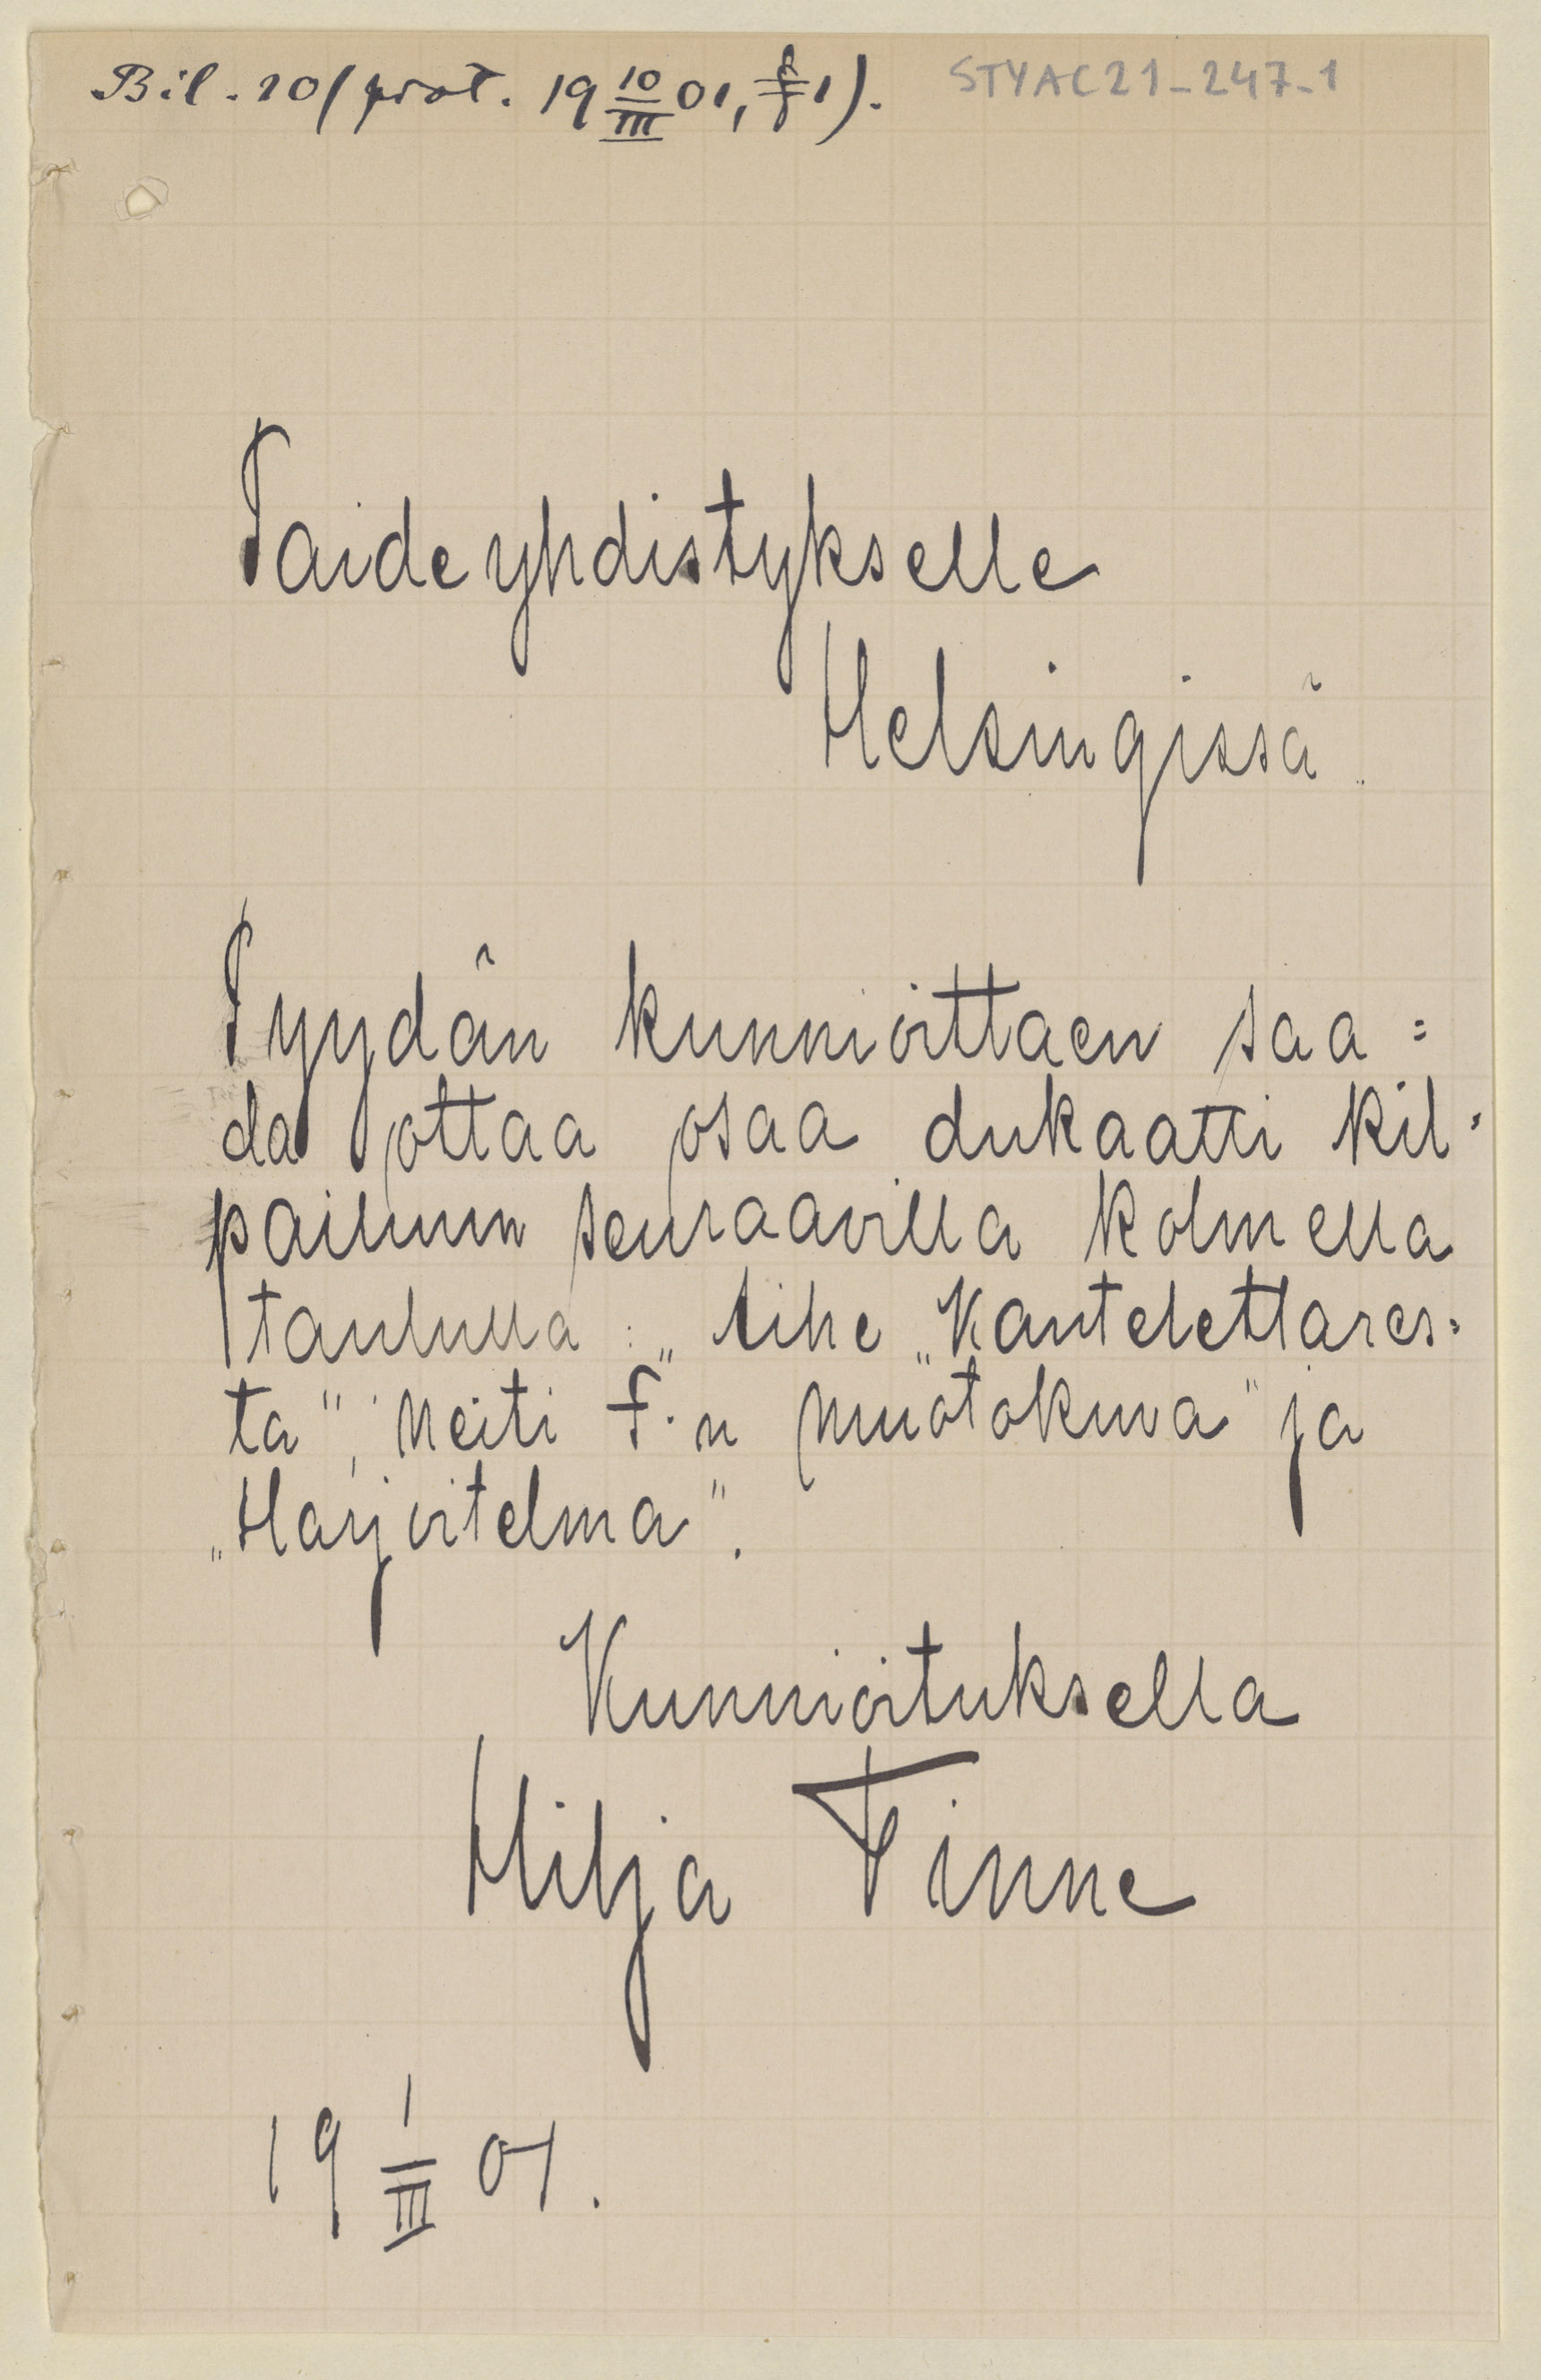 Bil. 20 (prot. 19 10/III 01, § 1). STYAC21_247_1
Taideyhdistykselle
Helsingissä.
Pyydän kunnioittaen saa=
da ottaa osaa dukaatti kil=
pailuun seuraavilla kolmella
taululla: „Aihe „Kantelettares=
ta", Neiti F.n muotokuva" ja
„Harjoitelma".
Kunnioituksella
Hilja Finne
19 1/III 01.